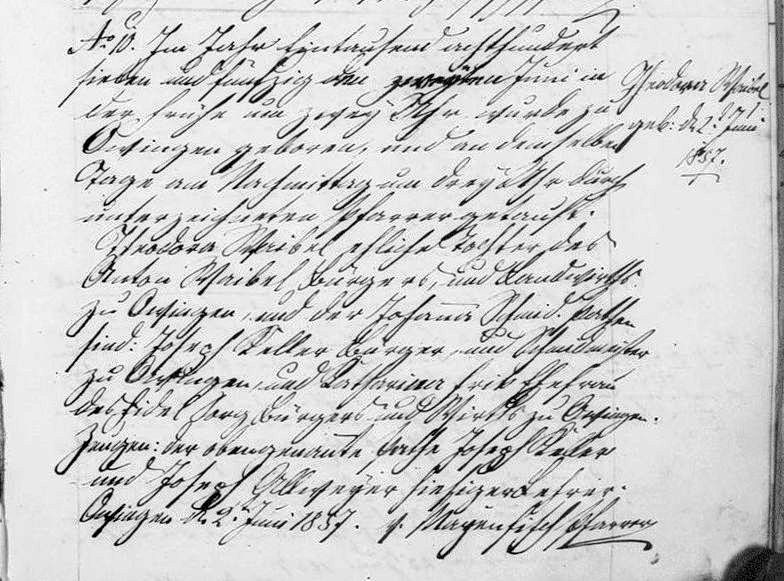 No. 10. Im Jahr Eintausend achthundert
sieben und fünfzig den zweyten Juni in
der Frühe um zwey Uhr wurde zu
Owingen geboren, und an demselben
Tage am Nachmittag um drey Uhr durch
unterzeichneten Pfarrer getauft.
Theodora Waibel ehliche Tochter des
Anton Waibel Bürgers, und Landwirths
zu Owingen, und der Johanna Schmid. Pathen
sind: Joseph Keller Bürger, und Schmidmeister
zu Owingen, und Katharina Ehefrau
des Fidel Bürgers und Wirths zu Owingen.
Zeugen: der obengenannte Pathe Joseph Keller
und Joseph Allweyer hiesiger Lehrer.
Owingen d. 2. Juni 1857. v. Mayenfisch Pfarrer
Theodora Waibel
geb. d. 2. Juni
1857.